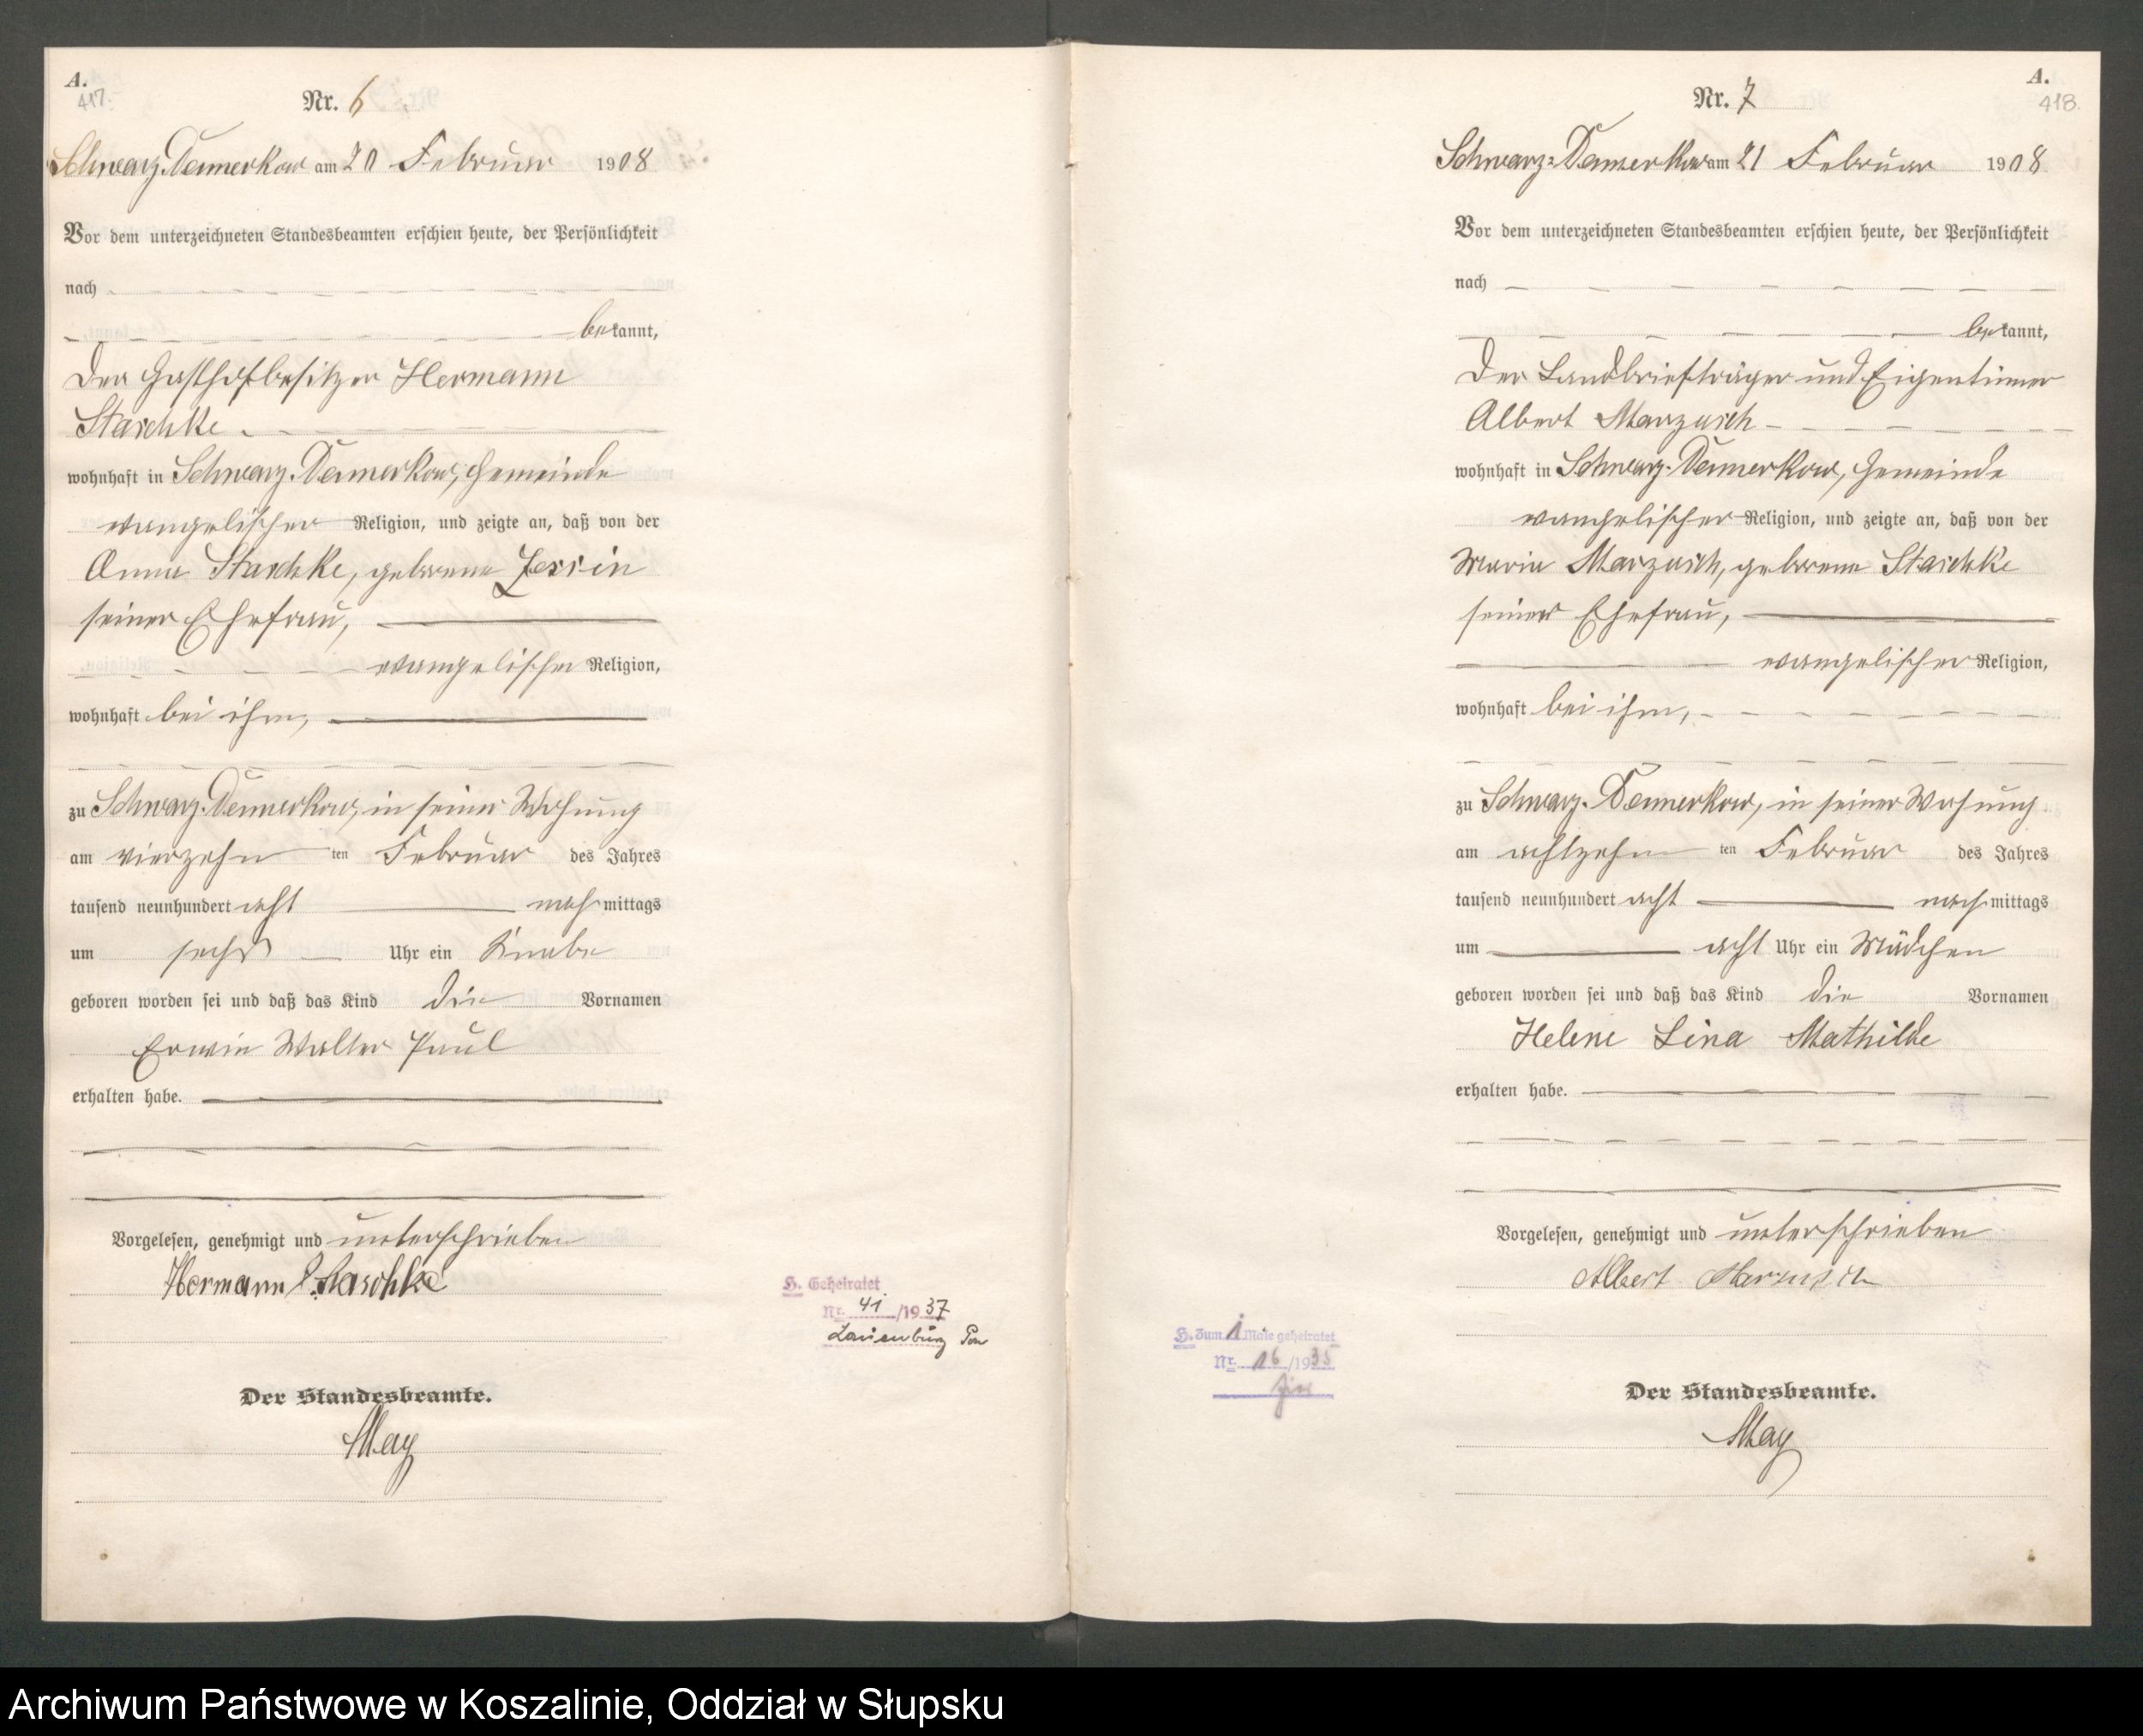 A.
417.
Nr. 6
Schwarz-Damerkow am 20 Februar 1908
Vor dem unterzeichneten Standesbeamten erschien heute, der Persönlichkeit
nach
bekannt,
der Gasthofbesitzer Hermann
Staschke
wohnhaft in Schwarz-Damerkow, Gemeinde
evangelischer Religion, und zeigte an, daß von der
Anna Staschke, geborene Jessin
seiner Ehefrau,
evangelischer Religion,
wohnhaft bei ihm,
zu Schwarz-Damerkow, in seiner Wohnung
am vierzehn ten Februar des Jahres
tausend neunhundert acht nachmittags
um sechs Uhr ein Knabe
geboren worden sei und daß das Kind die Vornamen
Erwin Walter Paul
erhalten habe.
Vorgelesen, genehmigt und unterschrieben
Hermann Staschke
Der Standesbeamte.
May
H. Geheiratet
Nr. 41 /1937
Lauenburg Pom
A.
418.
Nr. 7
Schwarz-Damerkow am 21 Februar 1908
Vor dem unterzeichneten Standesbeamten erschien heute, der Persönlichkeit
nach
bekannt,
der Landbriefträger und Eigentümer
Albert Marzusch
wohnhaft in Schwarz-Damerkow, Gemeinde
evangelischer Religion, und zeigte an, daß von der
Maria Marzusch, geborene Staschke
seiner Ehefrau,
evangelischer Religion,
wohnhaft bei ihm,
zu Schwarz-Damerkow, in seiner Wohnung
am achtzehn ten Februar des Jahres
tausend neunhundert acht nachmittags
um acht Uhr ein Mädchen
geboren worden sei und daß das Kind die Vornamen
Helene Lina Mathilde
erhalten habe.
Vorgelesen, genehmigt und unterschrieben
Albert Marzusch
Der Standesbeamte.
May
H. Zum 1 Male geheiratet
Nr. 16 /1935
Archiwum Państwowe w Koszalinie, Oddział w Słupsku